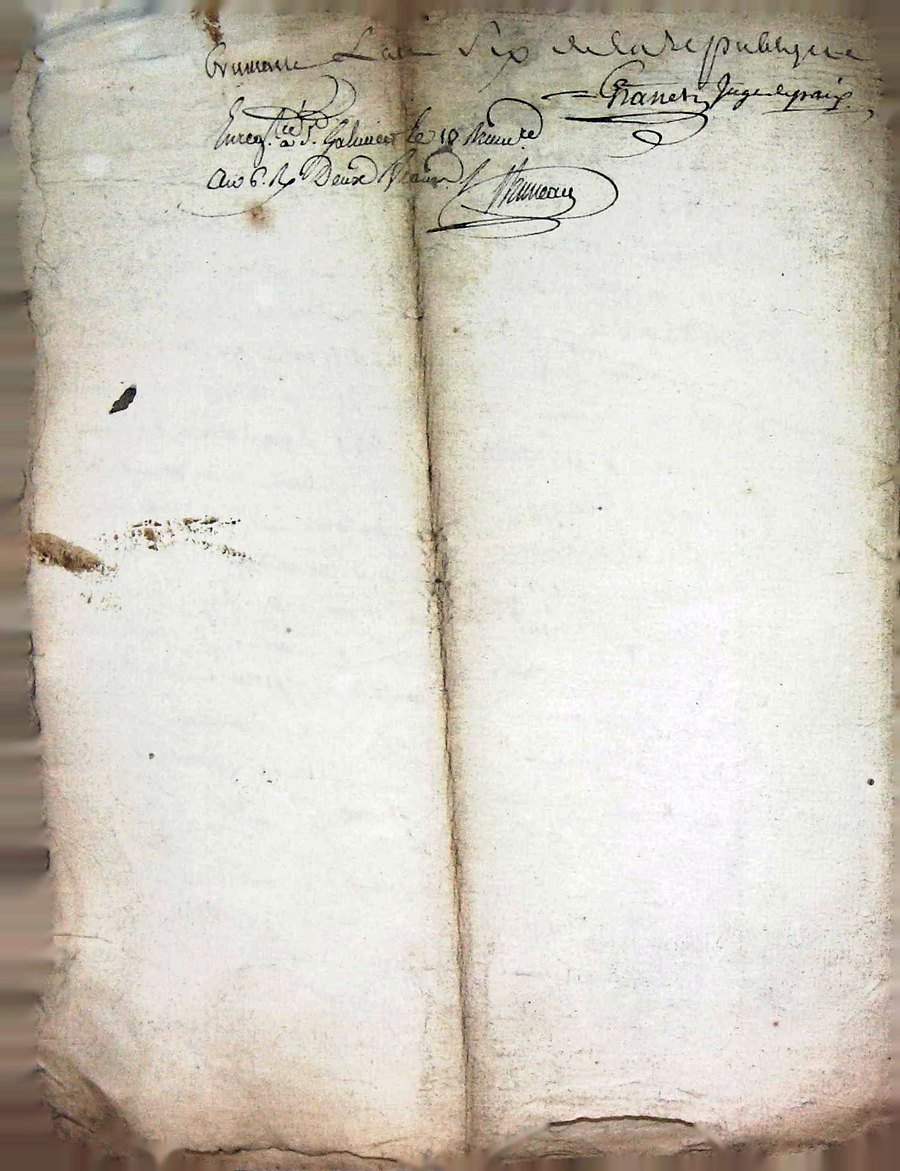 Brumaire L'an Six de la Republique
Juge de paix
Enreg.tré à St. Galmier le 18 Brum.re
an 6. R Deux francs
Bruneau